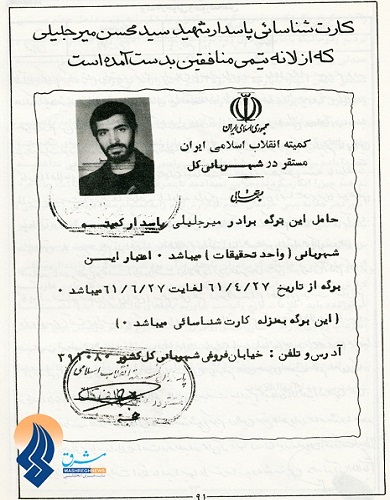 کارت شناسائی پاسدار شهید سید محسن میرجلیلی
که از لانه تیمی منافقین بدست آمده است
جمهوری اسلامی ایران
کمیته انقلاب اسلامی ایران
مستقر در شهربانی کل
بسمه تعالی
حامل این برگه برادر میرجلیلی پاسدار کمیته
شهربانی (واحد تحقیقات) میباشد ۰ اعتبار ایـن
برگه از تاریخ ۶۱/۴/۲۷ لغایت ۶۱/۶/۲۷ میباشد ۰
(این برگه بمنزله کارت شناسائی میباشد ۰)
آدرس و تلفن : خیابان فروغی شهربانی کل کشور ۳۹۲۰۸۰
انقلاب اسلامی
مشرق
MASHREGHNEWS
۹۱